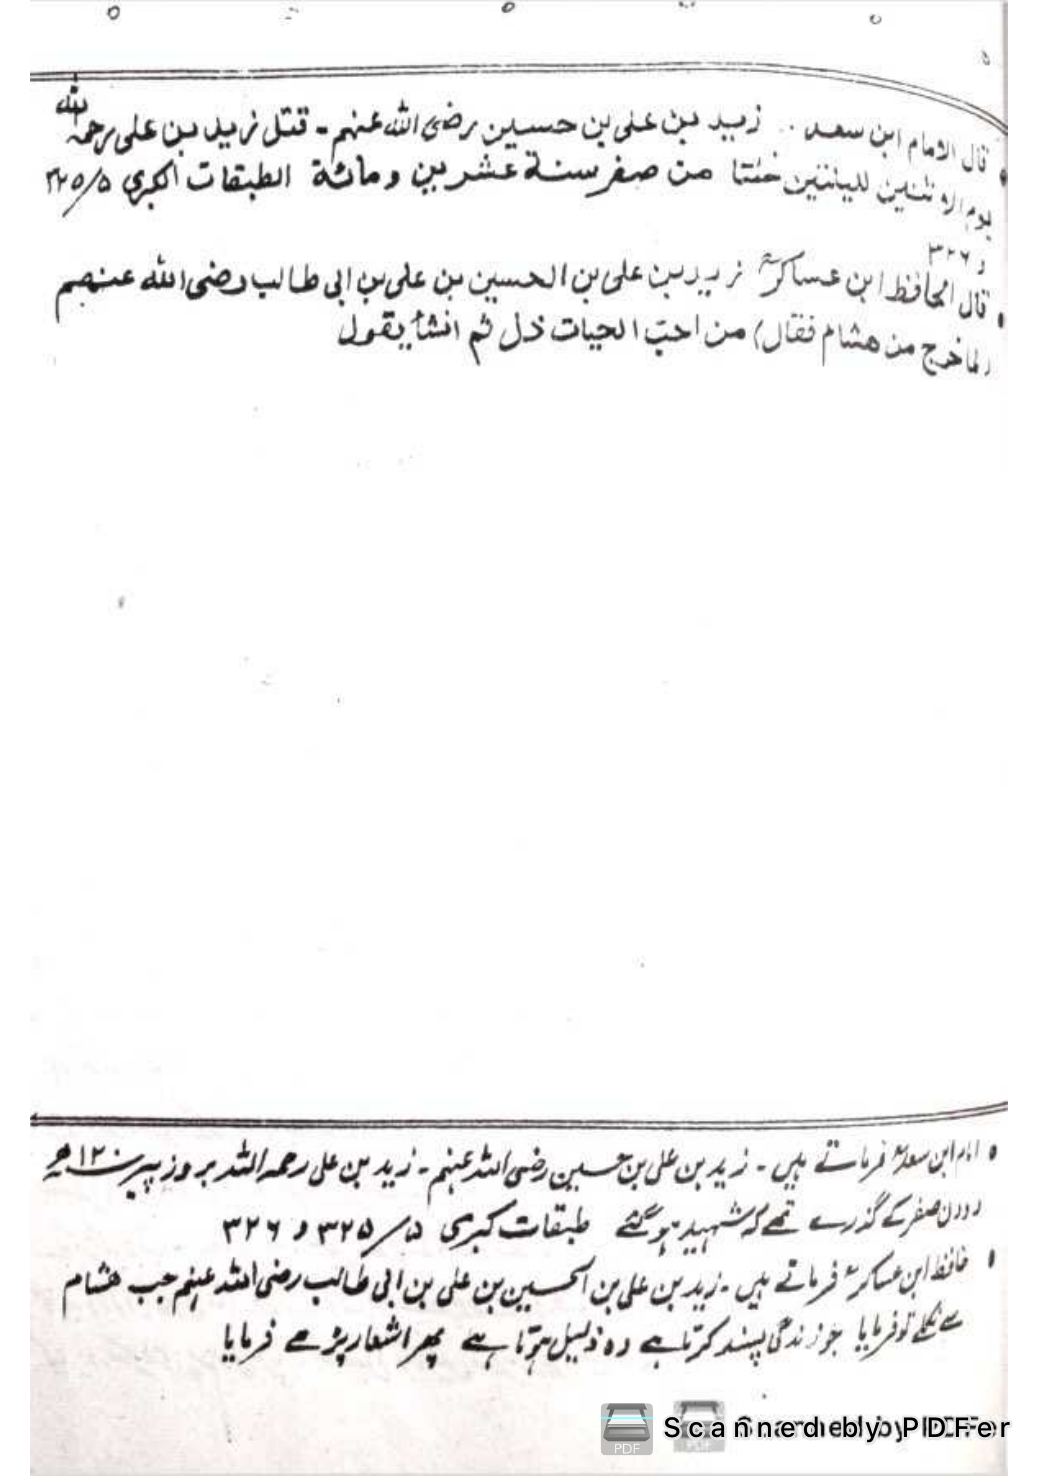 قال الامام ابن سعد .. زيد بن على بن حسين رضى الله عنهم - قتل زيد بن على رحمه الله
يوم الاثنين لليلتين خلتا من صفر سنة عشرين ومائة الطبقات الكبرى ٣٢٥/٥
و ٣٢٦
قال الحافظ ابن عساكرؒ زيد بن على بن الحسين بن على بن ابى طالب رضى الله عنهم
(لما خرج من هشام فقال) من احبّ الحيات ذل ثم انشأ يقول
امام ابن سعدؒ فرماتے ہیں - زید بن علی بن حسین رضی اللہ عنہم - زید بن علی رحمہ اللہ بروز پیر ۱۲۰ھ
دو دن صفر کے گذرے تھے کہ شہید ہو گئے طبقات کبری ۵/ ۳۲۵ و ۳۲۶
حافظ ابن عساکرؒ فرماتے ہیں - زید بن علی بن الحسین بن علی بن ابی طالب رضی اللہ عنہم جب ھشام
سے نکلے تو فرمایا جو زندگی پسند کرتا ہے وہ ذلیل ہوتا ہے پھر اشعار پڑھے فرمایا
PDF Scanned by PDFer